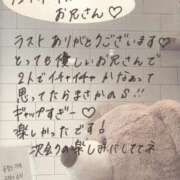 お兄さん♡
ラスト ありがとうございます♡
とっても優しいお兄さんで
2人でイチャイチャ かなぁって
思ってたらまさかのS!!
ギャップすぎー♡
楽しかったです!
次会うの楽しみにしててネ